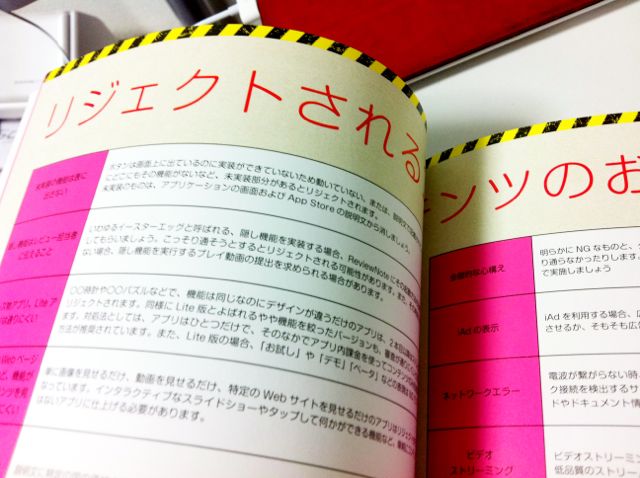 リジェクトされる
未実装の機能は表に
出さない
ボタンは画面上に出ているのに実装ができていないため動いていない、または、説明文で
にどこにもその機能がないなど、未実装部分があるとリジェクトされます。
未実装のものは、アプリケーションの画面および App Store の説明文から消しましょう。
機能はレビュー担当者
に伝えること
いわゆるイースターエッグと呼ばれる、隠し機能を実装する場合、ReviewNote にその
してもらいましょう。こっそり通そうとするとリジェクトされる可能性があります。また、
ない場合、隠し機能を実行するプレイ動画の提出を求められる場合があります。
アプリ、Lite ア
は通りにくい
○○時計や○○パズルなどで、機能は同じなのにデザインが違うだけのアプリは、2本目以降
リジェクトされます。同様に Lite 版とよばれるやや機能を絞ったバージョンも、審査が
ます。対処法としては、アプリはひとつだけで、そのなかでアプリ内課金を使ってコンテンツ
方法が推奨されています。また、Lite 版の場合、「お試し」や「デモ」「ベータ」などの表現は
Web ペー
ど、機能が
ンツを見
りにくい
単に画像を見せるだけ、動画を見せるだけ、特定の Web サイトを見せるだけのアプリはリジェクト
なっています。インタラクティブなスライドショーやタップして何かができる機能など、
はないアプリに仕上げる必要があります。
ンツのお
全体的な心構え
明らかに NG なものと、
り通らなかったりします。
で実施しましょう
iAd の表示
iAd を利用する場合、広
させるか、そもそも広
ネットワークエラー
電波が繋がらない時、
ク接続を検出するサ
ドやドキュメント情
ビデオ
ストリーミング
ビデオストリーミン
低品質のストリー